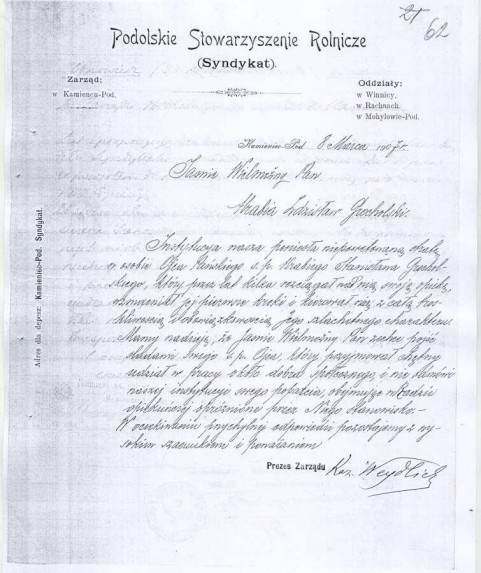 21
62
Podolskie Stowarzyszenie Rolnicze
(Syndykat).
Zarząd:
w Kamieńcu-Pod.
Oddziały:
w Winnicy,
w Rachnach,
w Mohylowie-Pod.
Adres dla depesz: Kamieniec-Pod. Syndykat.
Kamieniec-Pod 8 Marca 1907 r.
Jaśnie Wielmożny Pan
Hrabia Zdzisław Grocholski.
Instytucya nasza poniosła niepowetowaną stratę
w osobie Ojca Pańskiego ś. p. Hrabiego Stanisława Grochol-
skiego, który przez lat kilka rozciągał nad nią swoją opiekę,
pierwsze kroki i kierował nią z całą tro-
skliwością i Jego szlachetnego charakteru.
Mamy nadzieję, że Jaśnie Wielmożny Pan zechce pójść
śladami swego ś. p. Ojca, który przyjmował chętny
udział w pracy około dobra społecznego, i nie odmówi
naszej instytucyi swego poparcia, obejmując w Radzie
opiekuńczej opróżnione przez Niego stanowisko.-
W oczekiwaniu przychylnej odpowiedzi pozostajemy z wy-
sokim szacunkiem i poważaniem
Prezes Zarządu Kaz. Weydlich